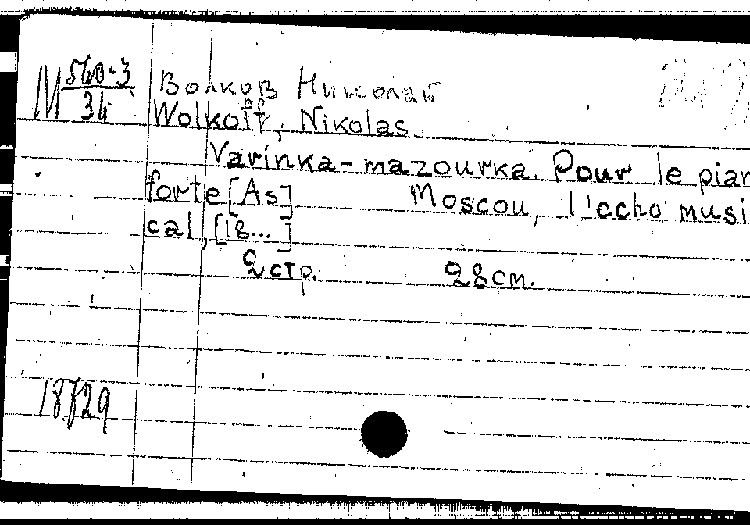 М 560-3
34
Волков Николай
Wolkoff, Nikolas.
Varinka-mazourka. Pour le pian
forte [As] Moscou, l'echo musi
cal, [18...]
2 стр. 28 см.
18729